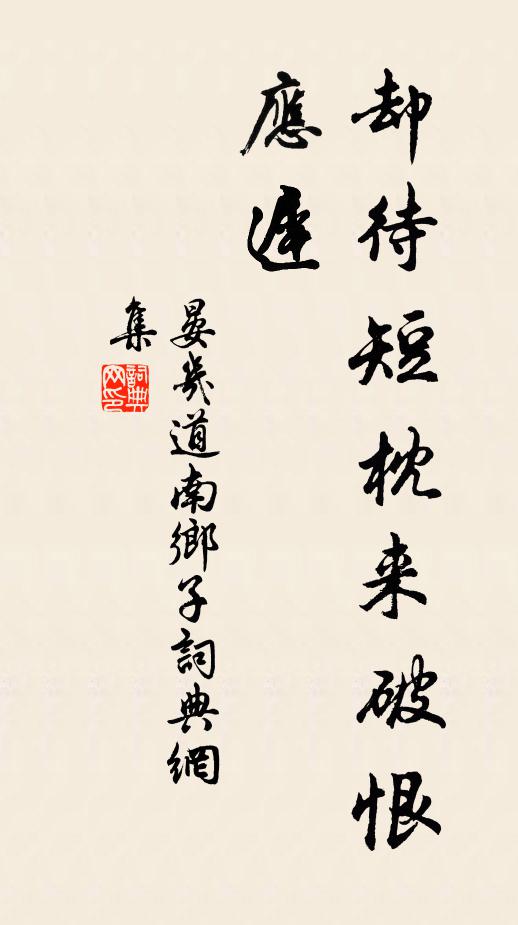 却待短枕来破恨
應遲
晏幾道南鄉子詞典網
集
詞典网印